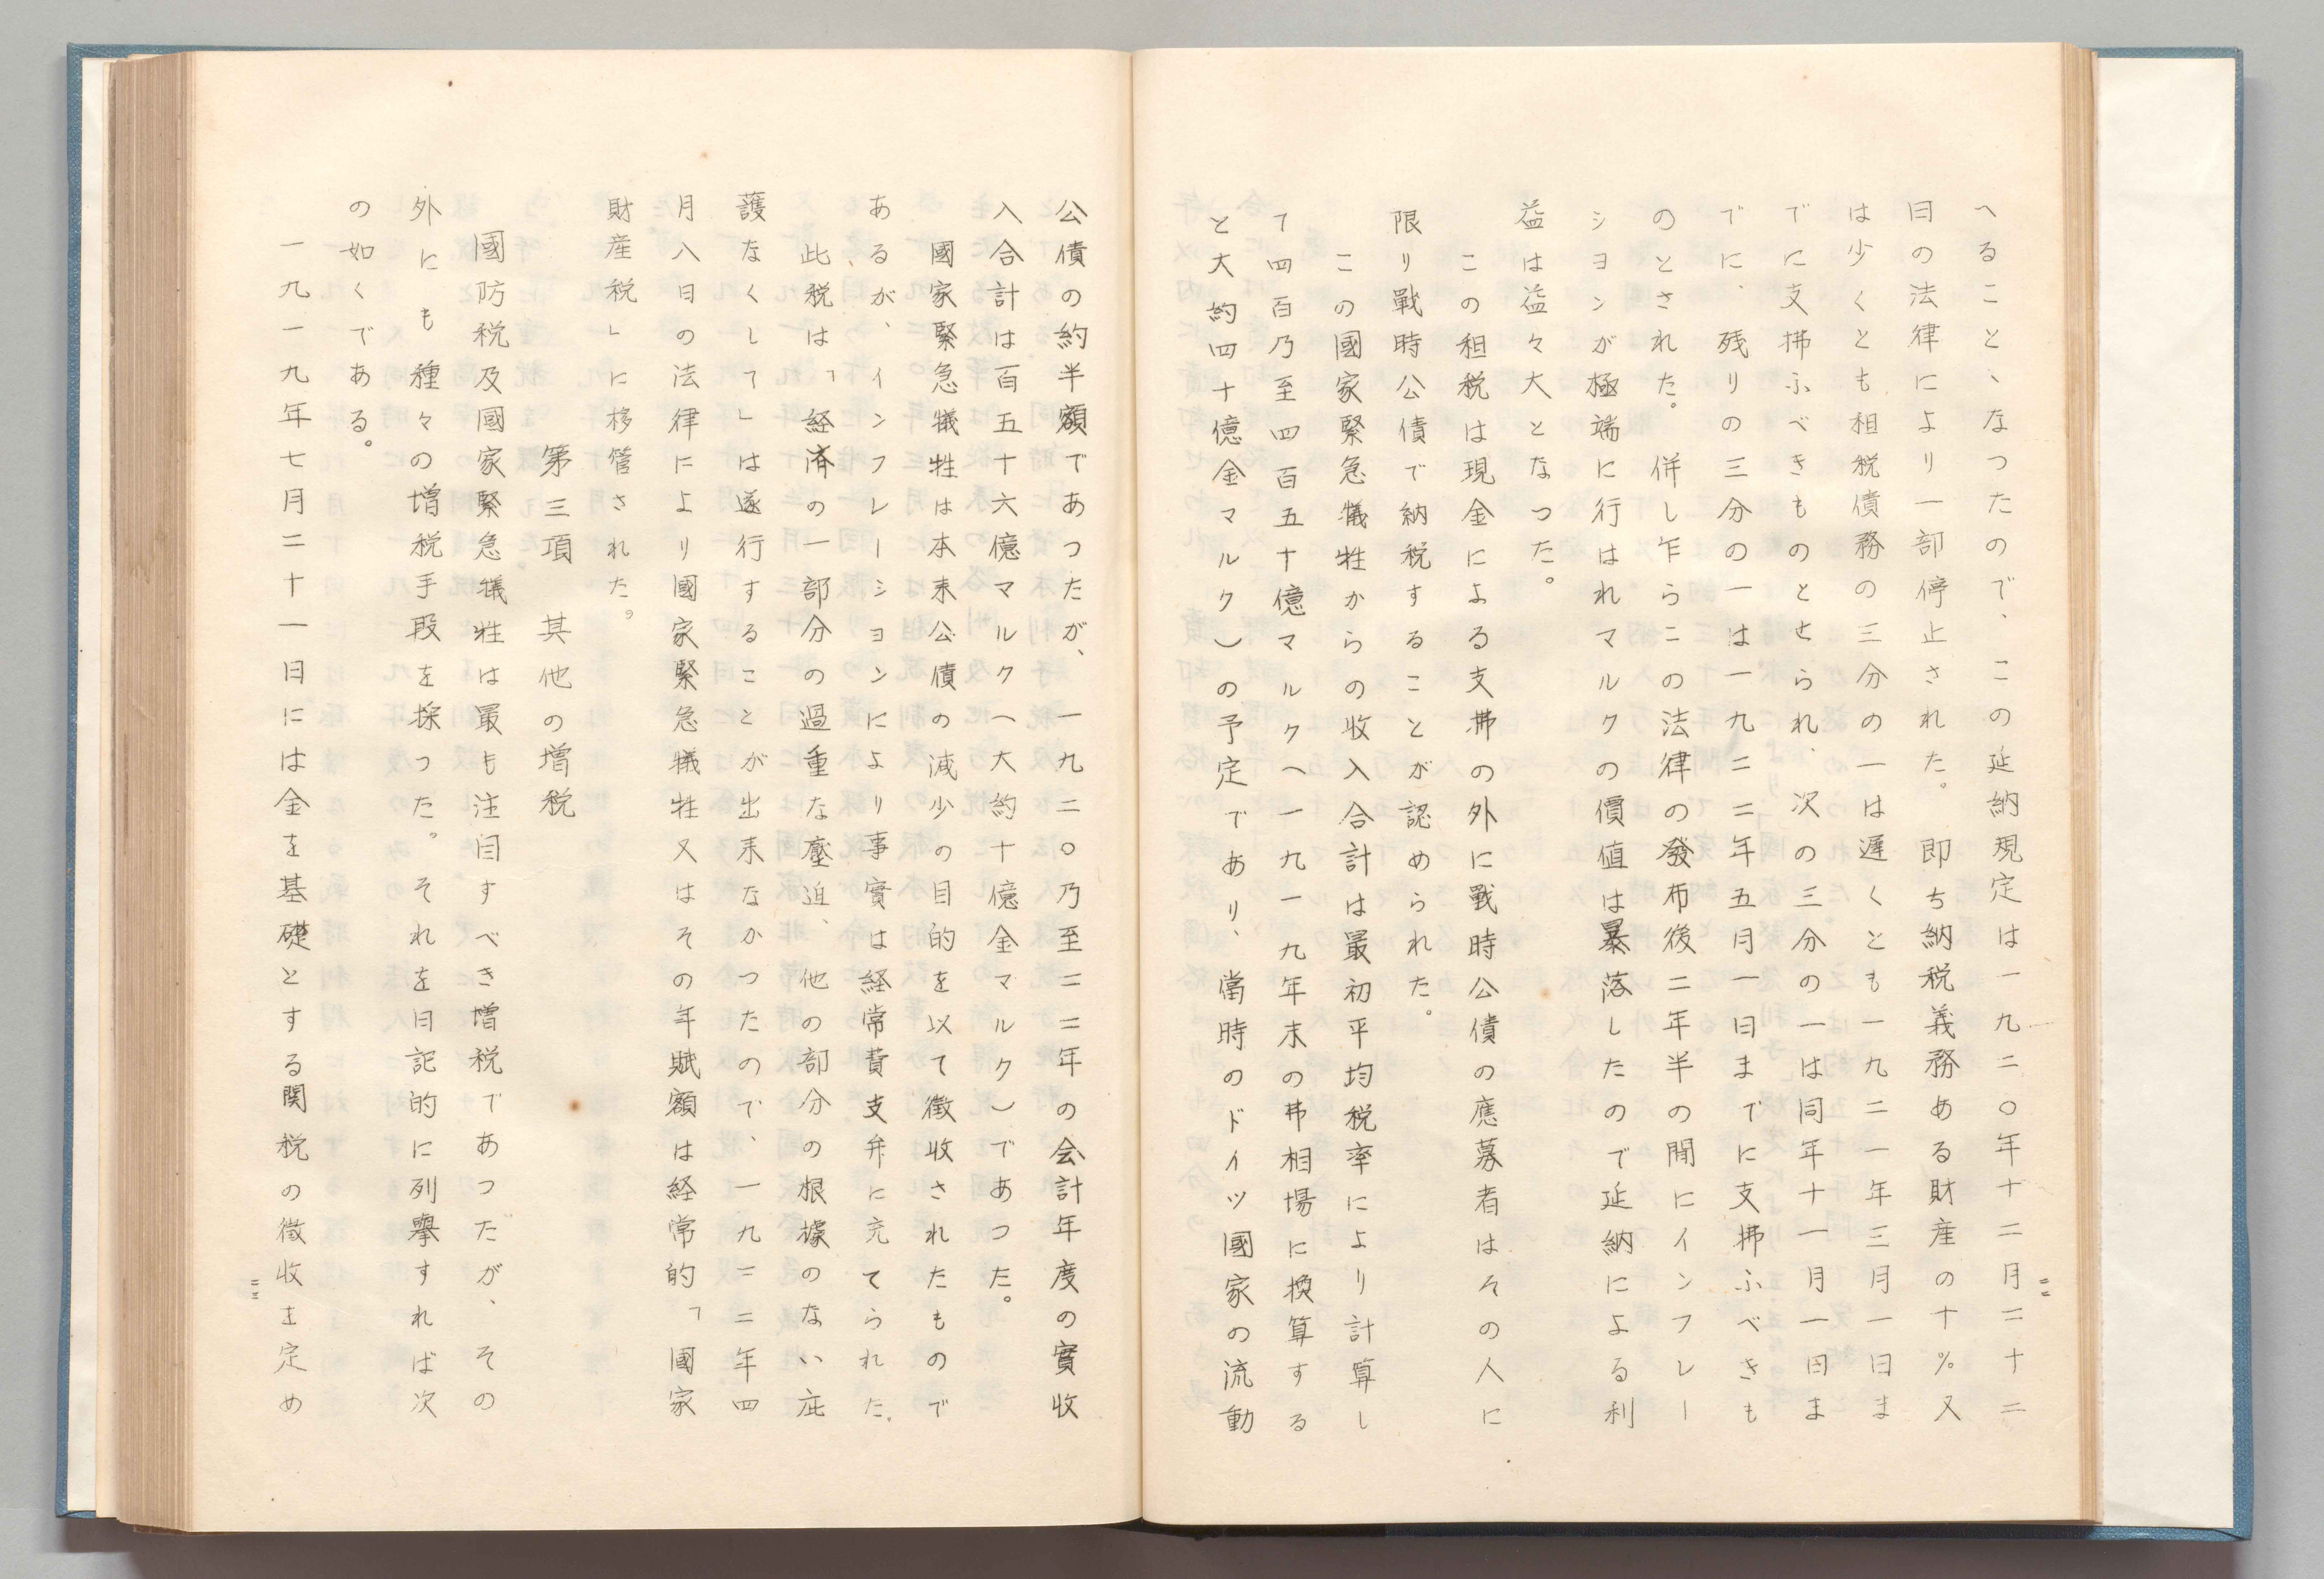 へること、なつたので、この延納規定は一九二〇年十二月二十二
日の法律により一部停止された。即ち納税義務ある財産の十%又
は少くとも相税債務の三分の一は遅くとも一九二一年三月一日ま
でに支拂ふべきものとせられ、次の三分の一は同年十一月一日ま
でに、残りの三分の一は一九二二年五月一日までに支拂ふべきも
のとされた。併し乍らこの法律の發布後二年半の間にインフレー
シヨンが極端に行はれマルクの價値は暴落したので延納による利
益は益々大となつた。
この租税は現金による支拂の外に戰時公債の應募者はその人に
限り戰時公債で納税することが認められた。
この國家緊急犠牲からの收入合計は最初平均税率により計算し
て四百乃至四百五十億マルク(一九一九年末の弗相場に換算する
と大約四十億金マルク)の予定であり、當時のドイツ國家の流動
公債の約半額であつたが、一九二〇乃至二二年の会計年度の實收
入合計は百五十六億マルク(大約十億金マルク)であつた。
國家緊急犠牲は本来公債の減少の目的を以て徴收されたもので
あるが、インフレーシヨンにより事實は経常費支弁に充てられた。
此税は「経済の一部分の過重な壓迫、他の部分の根據のない庇
護なくして」は遂行することが出来なかつたので、一九二二年四
月八日の法律により國家緊急犠牲又はその年賦額は経常的「國家
財産税」に移管された。
第三項 其他の増税
國防税及國家緊急犠牲は最も注目すべき増税であつたが、その
外にも種々の増税手段を採つた。それを日記的に列擧すれば次
の如くである。
一九一九年七月二十一日には金を基礎とする関税の徴收を定め